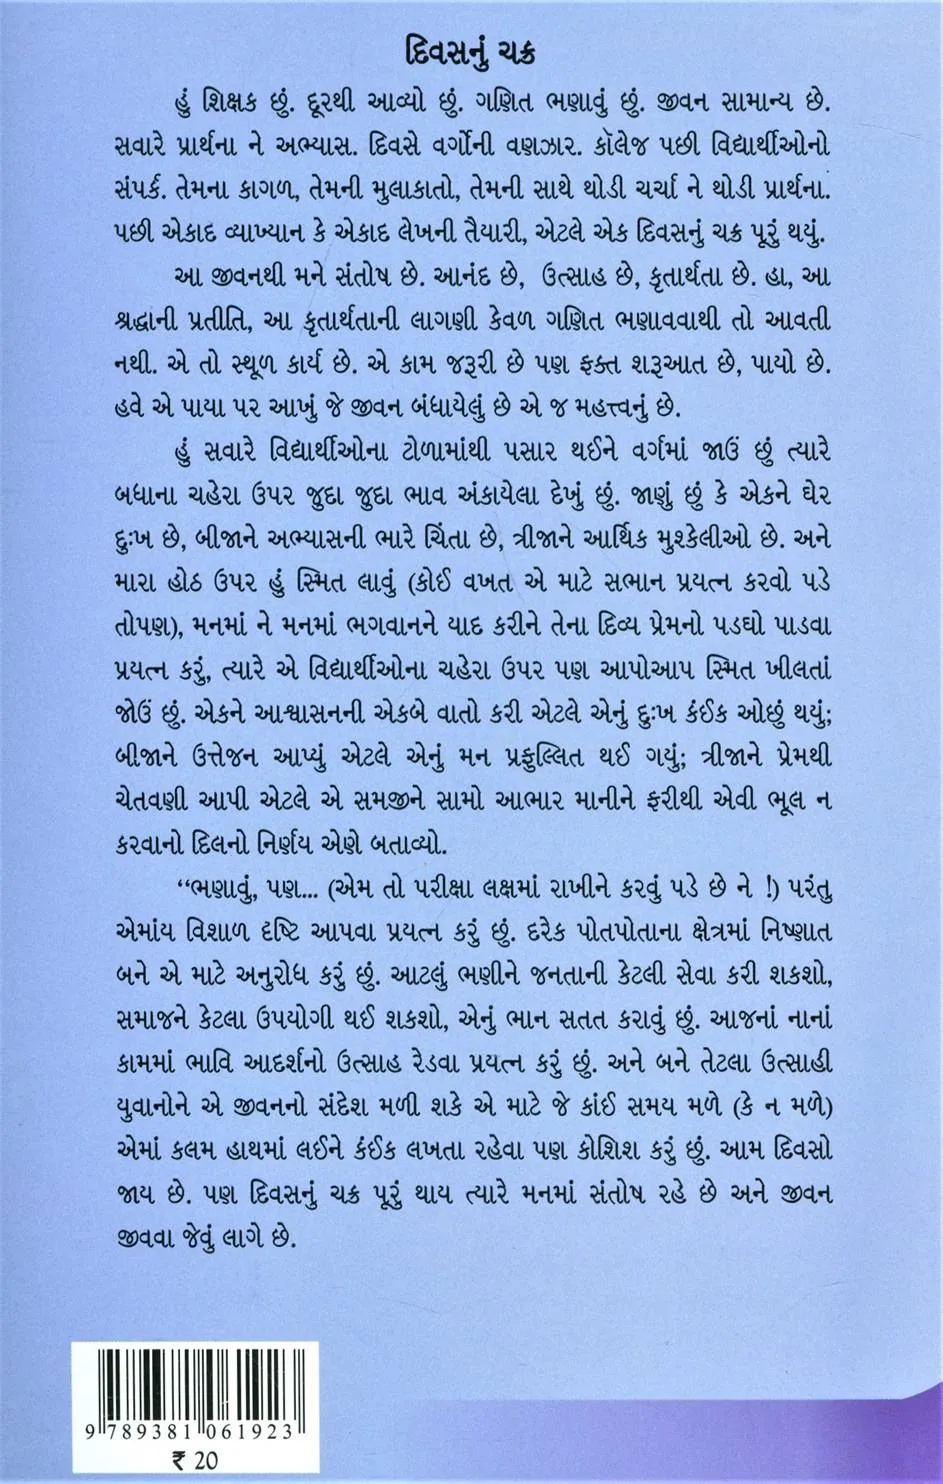 દિવસનું ચક્ર
હું શિક્ષક છું. દૂરથી આવ્યો છું. ગણિત ભણાવું છું. જીવન સામાન્ય છે.
સવારે પ્રાર્થના ને અભ્યાસ. દિવસે વર્ગોની વણઝાર. કૉલેજ પછી વિદ્યાર્થીઓનો
સંપર્ક. તેમના કાગળ, તેમની મુલાકાતો, તેમની સાથે થોડી ચર્ચા ને થોડી પ્રાર્થના.
પછી એકાદ વ્યાખ્યાન કે એકાદ લેખની તૈયારી, એટલે એક દિવસનું ચક્ર પૂરું થયું.
આ જીવનથી મને સંતોષ છે. આનંદ છે, ઉત્સાહ છે, કૃતાર્થતા છે. હા, આ
શ્રદ્ધાની પ્રતીતિ, આ કૃતાર્થતાની લાગણી કેવળ ગણિત ભણાવવાથી તો આવતી
નથી. એ તો સ્થૂળ કાર્ય છે. એ કામ જરૂરી છે પણ ફક્ત શરૂઆત છે, પાયો છે.
હવે એ પાયા પર આખું જે જીવન બંધાયેલું છે એ જ મહત્ત્વનું છે.
હું સવારે વિદ્યાર્થીઓના ટોળામાંથી પસાર થઈને વર્ગમાં જાઉં છું ત્યારે
બધાના ચહેરા ઉપર જુદા જુદા ભાવ અંકાયેલા દેખું છું. જાણું છું કે એકને ઘેર
દુઃખ છે, બીજાને અભ્યાસની ભારે ચિંતા છે, ત્રીજાને આર્થિક મુશ્કેલીઓ છે. અને
મારા હોઠ ઉપર હું સ્મિત લાવું (કોઈ વખત એ માટે સભાન પ્રયત્ન કરવો પડે
તોપણ), મનમાં ને મનમાં ભગવાનને યાદ કરીને તેના દિવ્ય પ્રેમનો પડઘો પાડવા
પ્રયત્ન કરું, ત્યારે એ વિદ્યાર્થીઓના ચહેરા ઉપર પણ આપોઆપ સ્મિત ખીલતાં
જોઉં છું. એકને આશ્વાસનની એકબે વાતો કરી એટલે એનું દુઃખ કંઈક ઓછું થયું;
બીજાને ઉત્તેજન આપ્યું એટલે એનું મન પ્રફુલ્લિત થઈ ગયું; ત્રીજાને પ્રેમથી
ચેતવણી આપી એટલે એ સમજીને સામો આભાર માનીને ફરીથી એવી ભૂલ ન
કરવાનો દિલનો નિર્ણય એણે બતાવ્યો.
“ભણાવું, પણ... (એમ તો પરીક્ષા લક્ષમાં રાખીને કરવું પડે છે ને !) પરંતુ
એમાંય વિશાળ દૃષ્ટિ આપવા પ્રયત્ન કરું છું. દરેક પોતપોતાના ક્ષેત્રમાં નિષ્ણાત
બને એ માટે અનુરોધ કરું છું. આટલું ભણીને જનતાની કેટલી સેવા કરી શકશો,
સમાજને કેટલા ઉપયોગી થઈ શકશો, એનું ભાન સતત કરાવું છું. આજનાં નાનાં
કામમાં ભાવિ આદર્શનો ઉત્સાહ રેડવા પ્રયત્ન કરું છું. અને બને તેટલા ઉત્સાહી
યુવાનોને એ જીવનનો સંદેશ મળી શકે એ માટે જે કાંઈ સમય મળે (કે ન મળે)
એમાં કલમ હાથમાં લઈને કંઈક લખતા રહેવા પણ કોશિશ કરું છું. આમ દિવસો
જાય છે. પણ દિવસનું ચક્ર પૂરું થાય ત્યારે મનમાં સંતોષ રહે છે અને જીવન
જીવવા જેવું લાગે છે.
9 789381 061923
₹ 20